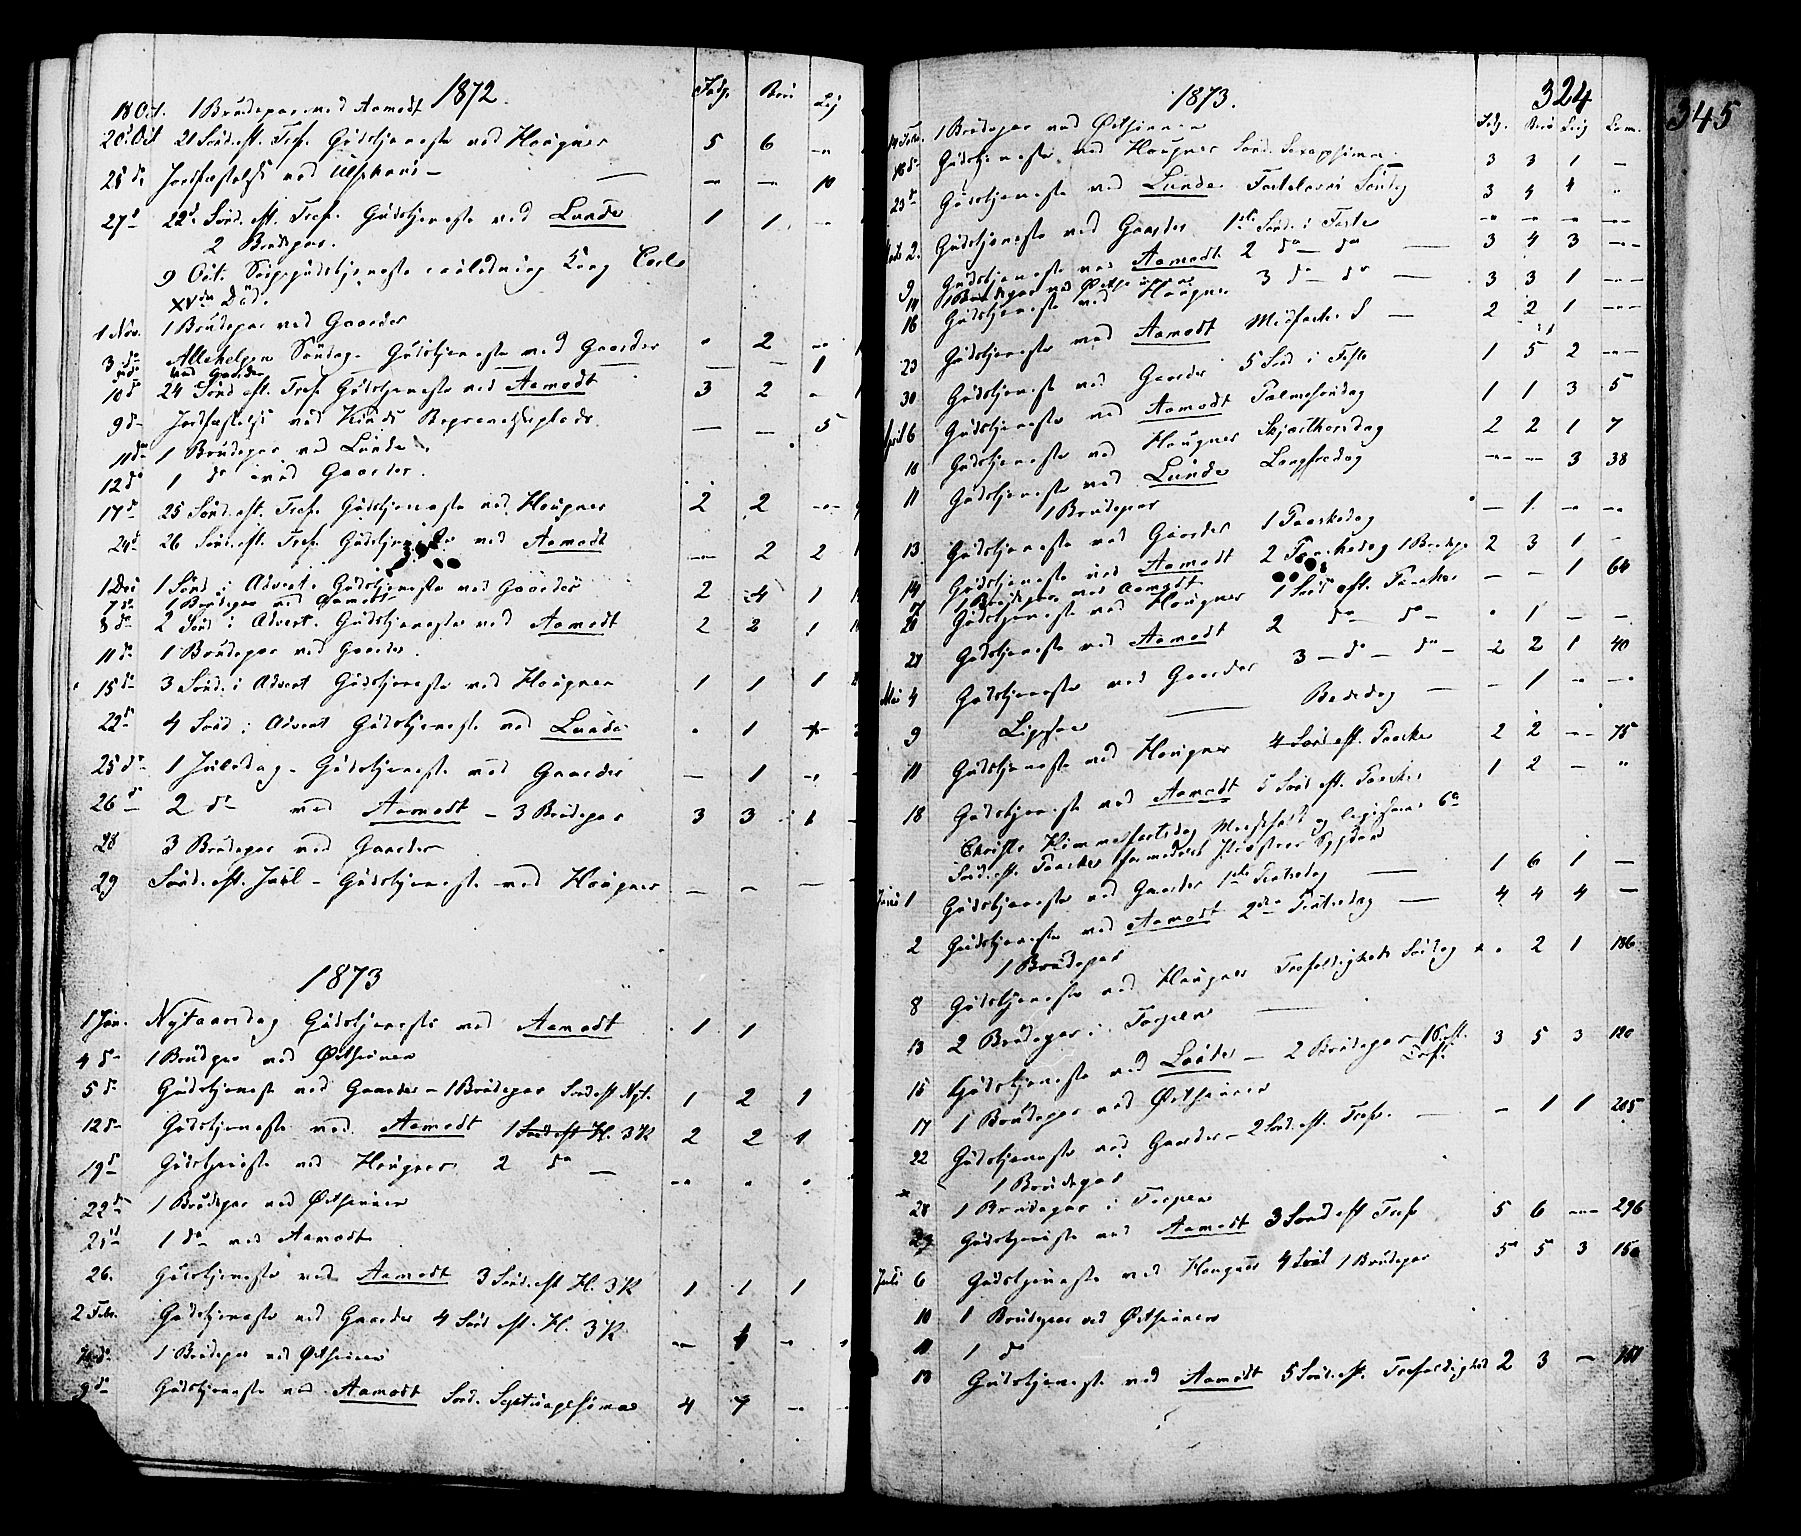 1872.
Fødp. Brw Lig
18 Oct. 1 Brudepar ved Aamodt
20 Oct 21 Sønd. eft. Tref. Gudstjeneste ved Hougner 5 6 — „
25 d° Jordfæstelse ved — — — 10
27 d° 22d Sønd. eft. Tref. Gudstjeneste ved Lunde 1 1 —
2 Brudepar.
9 Oct. Sørgegudstjeneste i anledning Kong Carls
XVdes Død.
1 Nov. 1 Brudepar ved Gaarder
3 d° Allehelgen Søndag. Gudstjeneste ved Gaarder „ 2 —
ved Gaarder — — 1
10 d° 24 Sønd. eft. Tref. Gudstjeneste ved Aamodt 3 2 „
9 d° Jordfæstelse ved Begravelsesplads. — — 5
11 d° 1 Brudepar ved Lunde
12 d° 1 d° ved Gaarder.
17 d° 25 Sønd. eft. Tref. Gudstjeneste ved Hougner 2 2 —
24 d° 26 Sønd. eft. Tref. Gudstjeneste ved Aamodt — 2 2
1 Dec 1 Sønd. i Advent. Gudstjeneste ved Gaarder 2 4 1
7 d° 1 Brudepar ved Aamodt
8 d° 2 Sønd i Advent. Gudstjeneste ved Aamodt 2 2 1
11 d° 1 Brudepar ved Gaarder.
15 d° 3 Sønd. i Advent Gudstjeneste ved Hougner 1 1 1
22 d° 4 Sønd i Advent Gudstjeneste ved Lunde „ 1 —
25 d° 1 Juledag - Gudstjeneste ved Gaarder — 1 —
26 d° 2 d° ved Aamodt - 3 Brudepar 3 3 1
28 3 Brudepar ved Gaarder
29 Sønd. eft. Juul - Gudstjeneste ved Hougner — — —
1873
1 Jan. Nytaarsdag Gudstjeneste ved Aamodt „ 1 1
4 d° 1 Brudepar ved Østsinnen
5 d° Gudstjeneste ved Gaarder - 1 Brudepar Sønd eft Nyt. 1 2 1
12 d° Gudstjeneste ved Aamodt 1 Sønd eft H. 3 K 2 2 1
19 d° Gudstjeneste ved Hougner 2 d° — „ „ „
22 d° 1 Brudepar ved Østsinnen
25 d 1 d° ved Aamodt
26. Gudstjeneste ved Aamodt 3 Sønd. eft H. 3 K 1 1 1
2 Febr. Gudstjeneste ved Gaarder 4 Sønd eft. H. 3 K. — 1 —
1 Brudepar ved Østsinnen
9 d° Gudstjeneste ved Aamodt Sønd. Septuagesima 4 7 —
1873.
324
345
Fdp. Brw Lig Com.
14 Febr. 1 Brudepar ved Østsinnen
16 d° Gudstjeneste ved Hougner Sønd. Sexagesima — 3 3 1 —
23 d° Gudstjeneste ved Lunde Fastelavns Søndag 3 4 4 „
2. Gudstjeneste ved Gaarder 1ste Sønd. i Faste — — — —
9 Gudstjeneste ved Aamodt 2 d° — d° — 3 4 3 —
14 1 Brudepar ved Østsinnen
16 Gudstjeneste ved Hougner 3 d° — d° — 3 3 1 —
23 Gudstjeneste ved Aamodt Midfaste S — 2 2 1 —
30 Gudstjeneste ved Gaarder 5 Sønd i Faste 1 5 2 —
April 6 Gudstjeneste ved Aamodt Palmesøndag 1 1 3 5
10 Gudstjeneste ved Hougner Skjærthorsdag 2 2 1 7
11 Gudstjeneste ved Lunde Langfredag — — 3 38
1 Brudepar
13 Gudstjeneste ved Gaarder 1 Paaskedag — 1 — —
14 Gudstjeneste ved Aamodt 2 Paaskedag 1 Brudepr 2 3 1 —
17 1 Brudepar ved Aamodt
20 Gudstjeneste ved Hougner 1 Sønd eft. Paaske — — 1 64
27 Gudstjeneste ved Aamodt 2 d° — d° — „ 1 — —
Mai 4 Gudstjeneste ved Gaarder 3 — d° — d° — 2 2 1 40
9 — Bededag — — 1 — —
11 Gudstjeneste ved Hougner 4 Sønd eft. Paaske 2 2 — 75
18 Gudstjeneste ved Aamodt 5 Sønd eft. Paaske 1 2 — „
Christi Himmelfartsdag Messefald og ligesaa 6te
Sønd. eft. Paaske formedelst Præstens Sygdom
Juni 1 Gudstjeneste ved Gaarder 1ste Pintsedag — 1 6 1 —
2 Gudstjeneste ved Aamodt 2den Pintsedag — 4 4 4 —
1 Brudepar
8 Gudstjeneste ved Hougner Trefoldigheds Søndag „ 2 1 186
13 2 Brudepar i Torpen —
15 Gudstjeneste ved Lunde — 2 Brudepar - 1 S. eft. Tref. 3 5 3 120
17 1 Brudepar ved Østsinnen
22 Gudstjeneste ved Gaarder - 2 Sønd. eft. Tref. — — 1 1 205
1 Brudepar
28 1 Brudepar i Torpen
29 Gudstjeneste ved Aamodt 3 Sønd eft Tref 5 6 — 296
Juli 6 Gudstjeneste ved Hougner 4 Sønd 1 Brudepar 5 5 3 150
10 1 Brudepar ved Østsinnen
11 1 d°
13 Gudstjeneste ved Aamodt 5 Sønd. eft. Trefoldighed 2 3 —